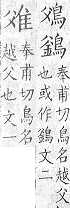 奉甫切鳥名越父
也或作文二
奉甫切鳥名
越父也文一